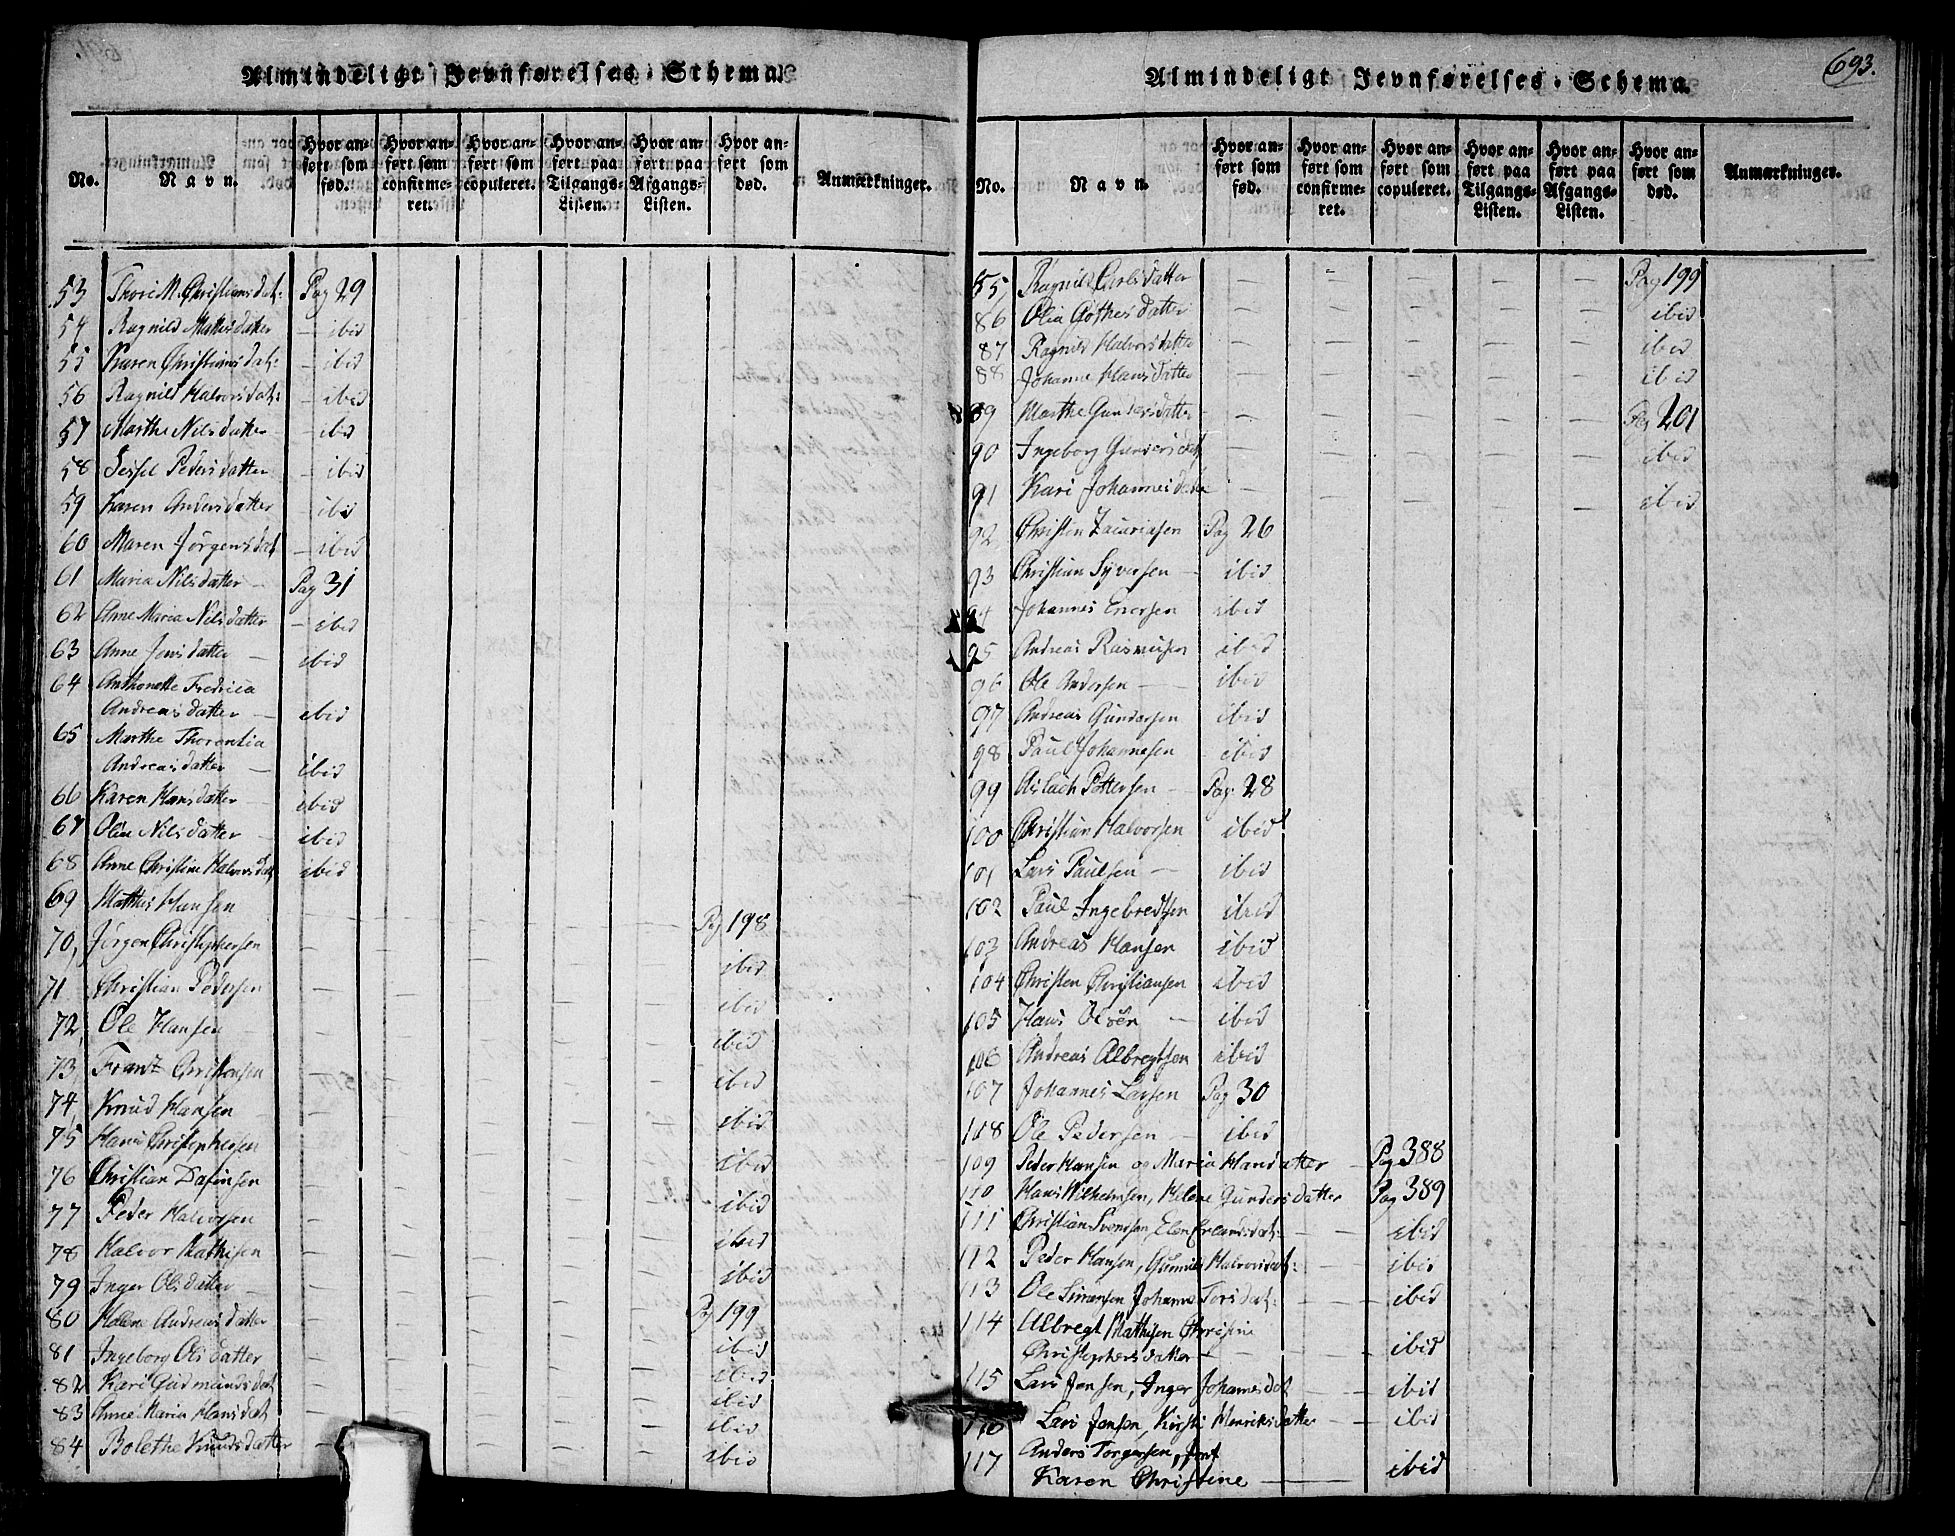 Almindeligt Jevnførelses-Schema.
No.
Navn.
Hvor anført som fød.
Hvor anført som confirmeret.
Hvor anført som copuleret.
Hvor anført paa Tilgangs-Listen.
Hvor anført paa Afgangs-Listen.
Hvor anført som død.
Anmærkninger.
53 Christiansdat: Pag 29
54 Ragnild Mathisdatter — ibid
55 Karen Christiansdat: — ibid
56 Ragnild Halvorsdat: — ibid
57 Marthe Nilsdatter — ibid
58 Sessel Pedersdatter — ibid
59 Karen Andersdatter — ibid
60 Maren Jørgensdat — ibid
61 Maria Nilsdatter — Pag 31
62 Anne Maria Nilsdatter — ibid
63 Anne Jensdatter — ibid
64 Anthonette Fredrica
Andreasdatter — ibid
65 Marthe Thorentia
Andreasdatter — ibid
66 Karen Hansdatter ibid
67 Olia Nilsdatter — ibid
68 Anne Christine Halvorsdat ibid
69 Mathis Hansen Pag 198
70, Jørgen Christophersen ibid
71 Christian Pedersen ibid
72, Ole Hansen ibid
73, Frantz Christensen ibid
74, Knud Hansen ibid
75 Hans Christophersen ibid
76 Christian ibid
77 Peder Halvorsen ibid
78 Halvor Mathisen ibid
79 Inger Olsdatter Pag 199
80 Helene Andreasdatter ibid
81 Ingeborg Olsdatter ibid
82 Kari Gudmundsdat ibid
83 Anne Maria Hansdat ibid
84 Bolethe Knudsdatter ibid
693.
Almindeligt Jevnførelses-Schema.
No.
Navn.
Hvor anført som fød.
Hvor anført som confirmeret.
Hvor anført som copuleret.
Hvor anført paa Tilgangs-Listen.
Hvor anført paa Afgangs-Listen.
Hvor anført som død.
Anmærkninger.
85, Ragnild Carlsdatter Pag 199
86 Olia Gothesdatter ibid
87 Ragnild Halvorsdatter ibid
88 Johanne Hansdatter ibid
89 Marthe Gundersdatter Pag 201
90 Ingeborg Gundersdat ibid
91 Kari Johannesdatter ibid
92, Christen Zacariasen Pag 26
93 Christian Syversen — ibid
94 Johannes Ericsen ibid
95 Andreas Rasmusen ibid
96 Ole Andersen — ibid
97 Andreas Gundersen ibid
98 Paul Johannesen ibid
99 Aslach Pettersen — Pag. 28
100 Christian Halvorsen ibid
101 Lars Paulsen — ibid
102 Paul Ingebredtsen ibid
103 Andreas Hansen ibid
104 Christen Christiansen ibid
105 Hans Olsen — ibid
106 Andreas Albregtsen ibid
107 Johannes Larsen Pag 30
108 Ole Pedersen — ibid
109 Peder Hansen og Maria Hansdatter — Pag 388
110 Hans Wilhelmsen, Helene Gundersdatter Pag 389
111 Christian Svensen, Elen Erlandsdat: — ibid
112 Peder Hansen, Gunnild Halvorsdat: — ibid
113 Ole Simensen Johanne Torsdat: — ibid
114 Albregt Mathisen Christine
Christophersdatter — ibid
115 Lars Jensen, Inger Johannesdat ibid
116 Lars Jensen, Kirsti Henriksdatter — ibid
117 Anders Torgersen,
Karen Christine — ibid